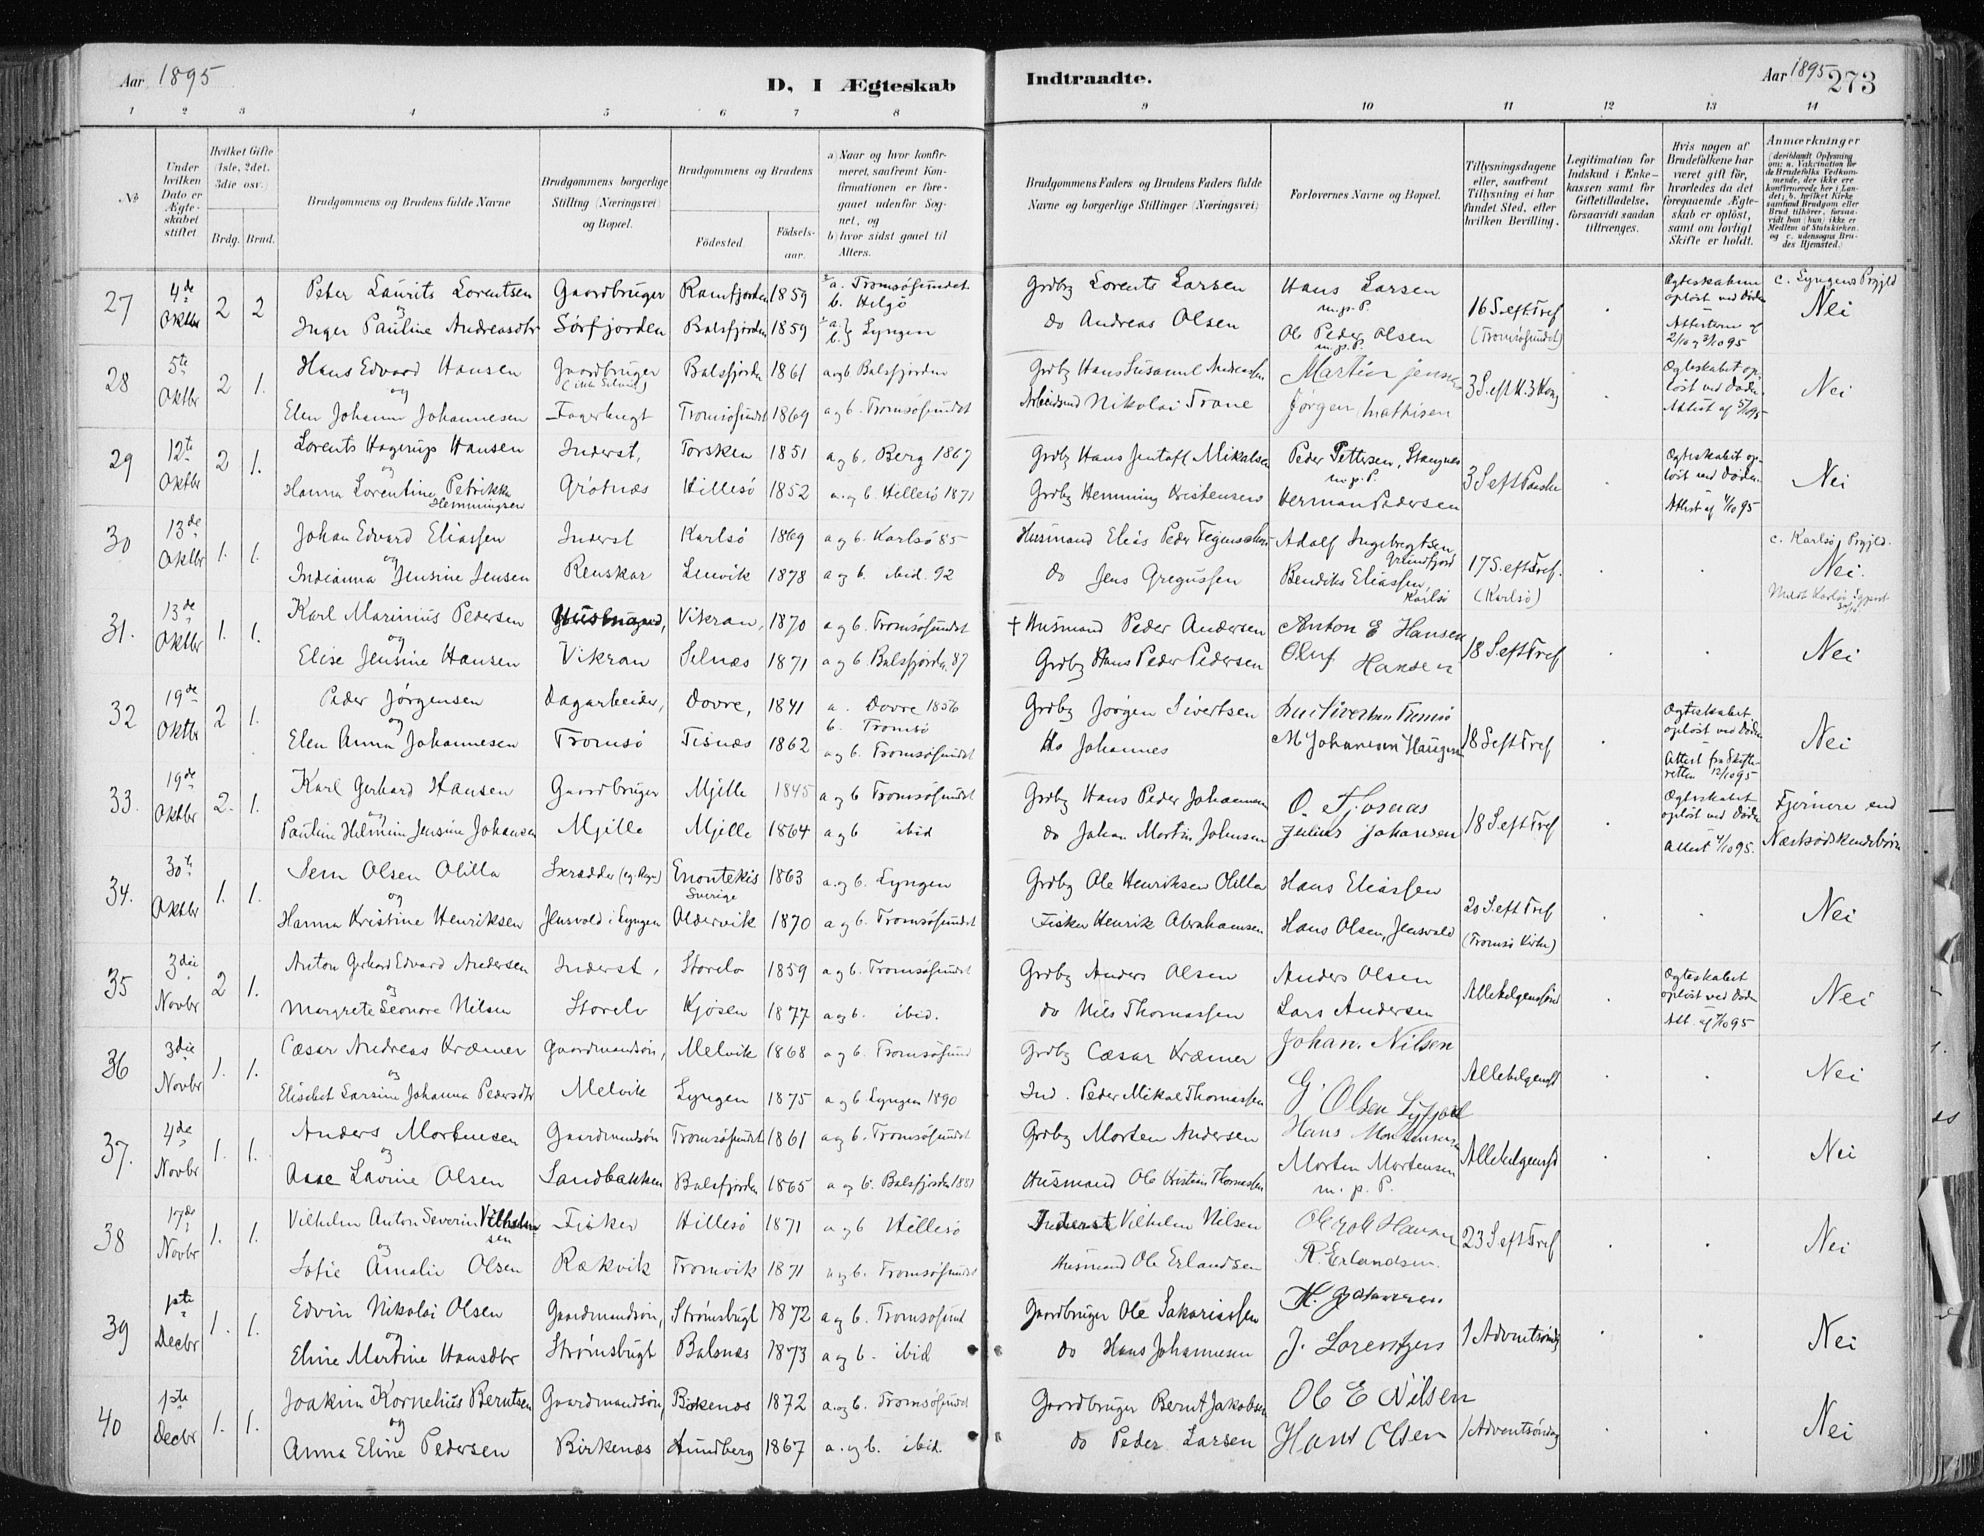 Aar 1895
D, I Ægteskab
Indtraadte.
Aar 1895
273
1 2 3 4 5 6 7 8 9 10 11 12 13 14
№
Under hvilken Dato er Ægteskabet stiftet
Hvilket Gifte (1ste, 2det, 3die osv.)
Brdg. Brud.
Brudgommens og Brudens fulde Navne
Brudgommens borgerlige Stilling (Næringsvei) og Bopæl.
Brudgommens og Brudens
Fødested.
Fødselsaar.
a) Naar og hvor konfirmeret, saafremt Konfirmationen er foregaaet udenfor Sognet, og
b) hvor sidst gaaet til Alters.
Brudgommens Faders og Brudens Faders fulde Navne og borgerlige Stillinger (Næringsvei)
Forlovernes Navne og Bopæl.
Tillysningsdagene eller, saafremt Tillysning ei har fundet Sted, efter hvilken Bevilling.
Legitimation for Indskud i Enkekassen samt for Giftetilladelse, forsaavidt saadan tiltrænges.
Hvis nogen af Brudefolkene har været gift før, hvorledes da det foregaaende Ægteskab er opløst, samt om lovligt Skifte er holdt.
Anmærkninger
27 4de Oktbr 2 2 Peter Laurits Lorentsen Gaardbruger Ramfjorden 1859 a. Tromsøsundet b. Helgø Grdbg Lorents Larsen Hans Larsen m.p.P. 16 S. eft Tref (Tromsøsundet) Ægteskabene opløst ved Døden Attesterne af 2/10 og 3/10 95 c. Lyngens Prgjld Nei
Inger Pauline Andreasdtr Sørfjorden Balsfjorden 1859 a. b. Lyngen do Andreas Olsen Ole Peder Olsen m.p.P.
28 5te Oktbr 2 1. Hans Edvard Hansen Gaardbruger Balsfjorden 1861 a og b Balsfjorden Grdbg Hans Susanel Andreassen Martin Jensen 3 S eft H. 3 Kong Ægteskabet opløst ved Døden Attest af 5/10 95 Nei
og
Elen Johanna Johannesen Fagerbugt Tromsøsundet 1869 a og b. Tromsøsundet Arbeidsmd Nikolai Trane Jørgen Mathisen
29 12te Oktbr 2 1. Lorents Hagerup Hansen Inderst, Torsken 1851 a og b. Berg 1867 Grdbg Hans Jentoft Mikalsen Peder Pettersen, Stangnes m.p.P. 3 S eft Paaske Ægteskabet opløst ved Døden Attest af 4/10 95 Nei
og
Hanna Lorentine Petrikke Hemmingsen Grøtnæs Hillesø 1852 a. og b. Hillesø 1871 Grdbg Hemming Kristensen Herman Pedersen
30 13de Oktbr 1. 1. Johan Edvard Eliassen Inderst Karlsø 1869 a og b. Karlsø 85 Husmand Elias Peder Adolf Ingebregtsen, Grundfjord 17 S. eft Tref. (Karlsø) c. Karlsø Prgjld. Nei.
og
Indianna Jensine Jensen Renskar Lenvik 1878 a og b. ibid. 92 do Jens Gregussen Bendiks Eliassen, Karlsø
31. 13de Oktbr 1. 1. Karl Marinius Pedersen Vikran, 1870 a og b. Tromsøsundet † Husmand Peder Andersen Anton E Hansen 18 S eft Tref Nei
og
Elise Jensine Hansen Vikran Selnæs 1871 a og b Balsfjorden 87 Grdbg Hans Peder Pedersen Oluf Hansen
32 19de Oktbr 2 1. Peder Jørgensen Dagarbeider, Dovre, 1841 a. Dovre 1856 b. Tromsø Grdbg Jørgen Sivertsen 18 S eft Tref Ægteskabet opløst ved Døden Attest fra Skifteretten 12/10 95 Nei
og
Elen Anna Johannesen Tromsø Tisnæs 1862 a og b. Tromsøsundet do Johannes M Johannesen Haugen
33. 19de Oktbr 2. 1. Karl Gerhard Hansen Gaardbruger Mjille 1845 a og b Tromsøsundet Grdbg Hans Peder Johannesen O. Tjosnaas 18 S eft Tref Ægteskabet opløst ved Døden Attest 4/10 95. Fjernere end Næstsødskendebørn
og
Pauline Helmine Jensine Johansen Mjille Mjille 1864 a og b ibid do Johan Mortin Johnsen Julius Johansen
34. 30te Oktbr 1. 1. Sem Olsen Olilla Skrædder Enontekis Sverige 1863 a. og b. Lyngen Grdbg Ole Henriksen Olilla Hans Eliassen 20 S. eft Tref (Tromsø Kirke) Nei
og
Hanna Kristine Henriksen Jensvold i Lyngen Oldervik 1870 a og b. Tromsøsundet Fisker Henrik Abrahamsen Hans Olsen, Jensvold
35 3die Novbr 2 1. Anton Gerhard Edvard Andersen Inderst, Storelv 1859 a og b. Tromsøsundet Grdbg Anders Olsen Anders Olsen Allehelgenssønd Ægteskabet opløst ved Døden Att. af 7/10 95 Nei
og
Margrete Leonore Nilsen Storelv Kjosen 1877 a og b. ibid. do Nils Thomassen Lars Andersen
36 3die Novbr 1. 1. Cæsar Andreas Kræmer Gaardmandsøn, Melvik 1868 a og b. Tromsøsund Grdbg Cæsar Kræmer Johan. Nilsen Allehelgensd Nei
og
Elisebet Larsine Johanna Pedersdtr Melvik Lyngen 1875 a og b Lyngen 1890 Ind. Peder Mikal Thomassen G. Olsen Lyfjord
37. 4de Novbr 1. 1. Anders Mortensen Gaardmandsøn Tromsøsundet 1861 a og b. Tromsøsundet Grdbg Morten Andersen Hans Mortensen Allehelgensd Nei
og
Aase Lavine Olsen Sandbakken Balsfjorden 1865 a og b. Balsfjorden 1881 Husmand Ole Kristian Thomassen Morten Mortensen m. p. P.
38 17de Novbr 1. 1. Vilhelm Anton Severin Vilhelmsen Fisker Hillesø 1871 a og b Hillesø Inderst Vilhelm Nilsen 23 S eft Tref Nei
og
Sofie Amalie Olsen Rækvik Tromvik 1871 a og b. Tromsøsundet Husmand Ole Erlandsen R. Erlandsen.
39 1ste Decbr 1. 1. Edvin Nikolai Olsen Gaardmandsøn, Strømsbugt 1872 a og b. Tromsøsund Gaardbruger Ole Sakariassen 1 Adventsøndag Nei
og
Eline Martine Hansdtr Strømsbugt Balsnæs 1873 a og b. ibid do Hans Johannesen J. Lorentzen
40 1ste Decbr 1. 1. Joakim Kornelius Berntsen Gaardmandsøn, Birkenæs 1872 a. og b. Tromsøsundet Gaardbruger Bernt Jakobsen Ole E Nilsen 1 Adventsøndag Nei
og
Anna Eline Pedersen Birkenæs Sundberg 1867 a. og b. ibid. do Peder Larsen Hans Olsen